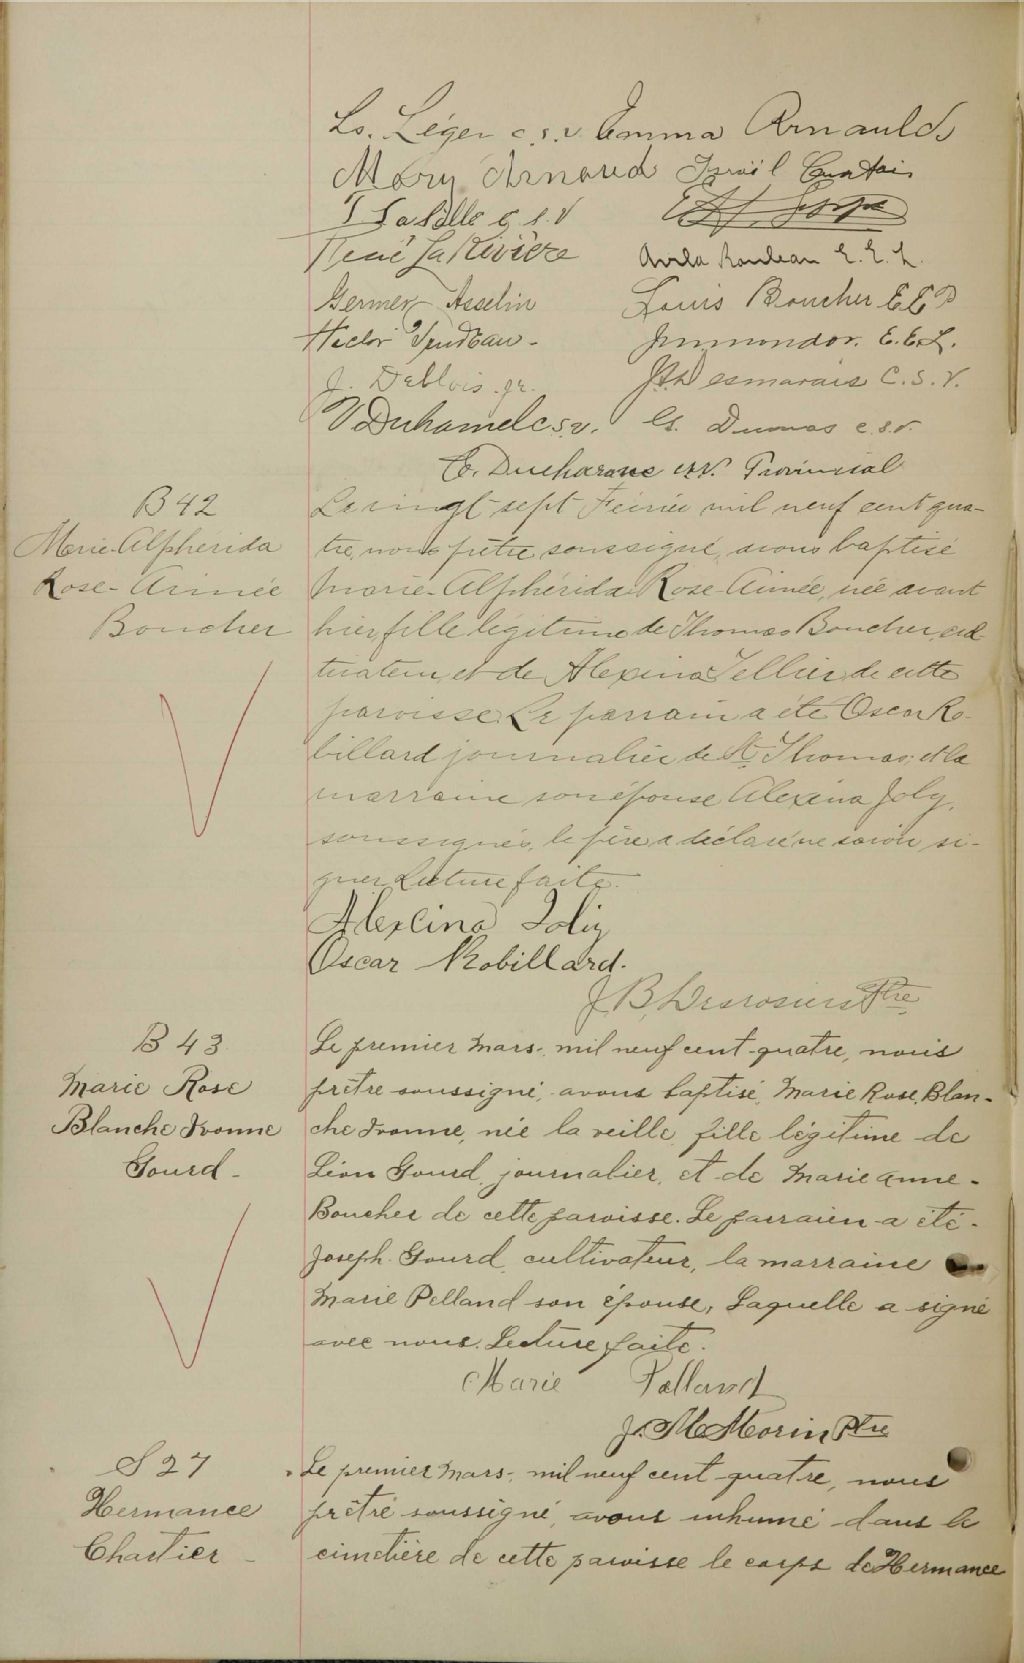 Ls. Léger c.s.v. Emma Arnauld
Mary Arnaud Israël
T Lasalle c.s.v
René LaRivière Avila Rondeau E.E.L.
Germer Asselin Louis Boucher E E D
Hector E.E.L.
J. Deblois jr. Desmarais C.S.V.
V Duhamel c.s.v. Dumas c.s.v.
E. Ducharme c.s.v. Provincial
B 42
Marie-Alphérida
Rose-Aimée
Boucher
Le vingt-sept Février mil neuf cent qua-
tre, nous prêtre soussigné, avons baptisé
Marie-Alphérida Rose-Aimée, née avant
hier fille légitime de Thomas Boucher, cul
tivateur, et de Alexina Tellier, de cette
paroisse. Le parrain a été Oscar Ro-
billard journalier de St Thomas, et la
marraine son épouse Alexina Joly,
soussignés, le père a déclaré ne savoir si-
gner. Lecture faite.
Alexcina Joliy
Oscar Robillard.
J. B. Desrosiers Ptre
B 43
Marie Rose
Blanche Ivonne
Gourd -
Le premier Mars, mil neuf cent-quatre, nous
prêtre soussigné, avons baptisé, Marie Rose, Blan-
che Ivonne, née la veille, fille légitime de
Léon Gourd, journalier, et de Marie Anne-
Boucher de cette paroisse. Le parrain a été-
Joseph Gourd, cultivateur, la marraine
Marie Pelland son épouse, Laquelle a signé
avec nous. Lecture faite.
Marie Pelland
J. M. Morin Ptre
S 27
Hermance
Chartier -
Le premier Mars, mil neuf cent-quatre, nous
prêtre soussigné, avons inhumé dans le
cimetière de cette paroisse le corps de Hermance